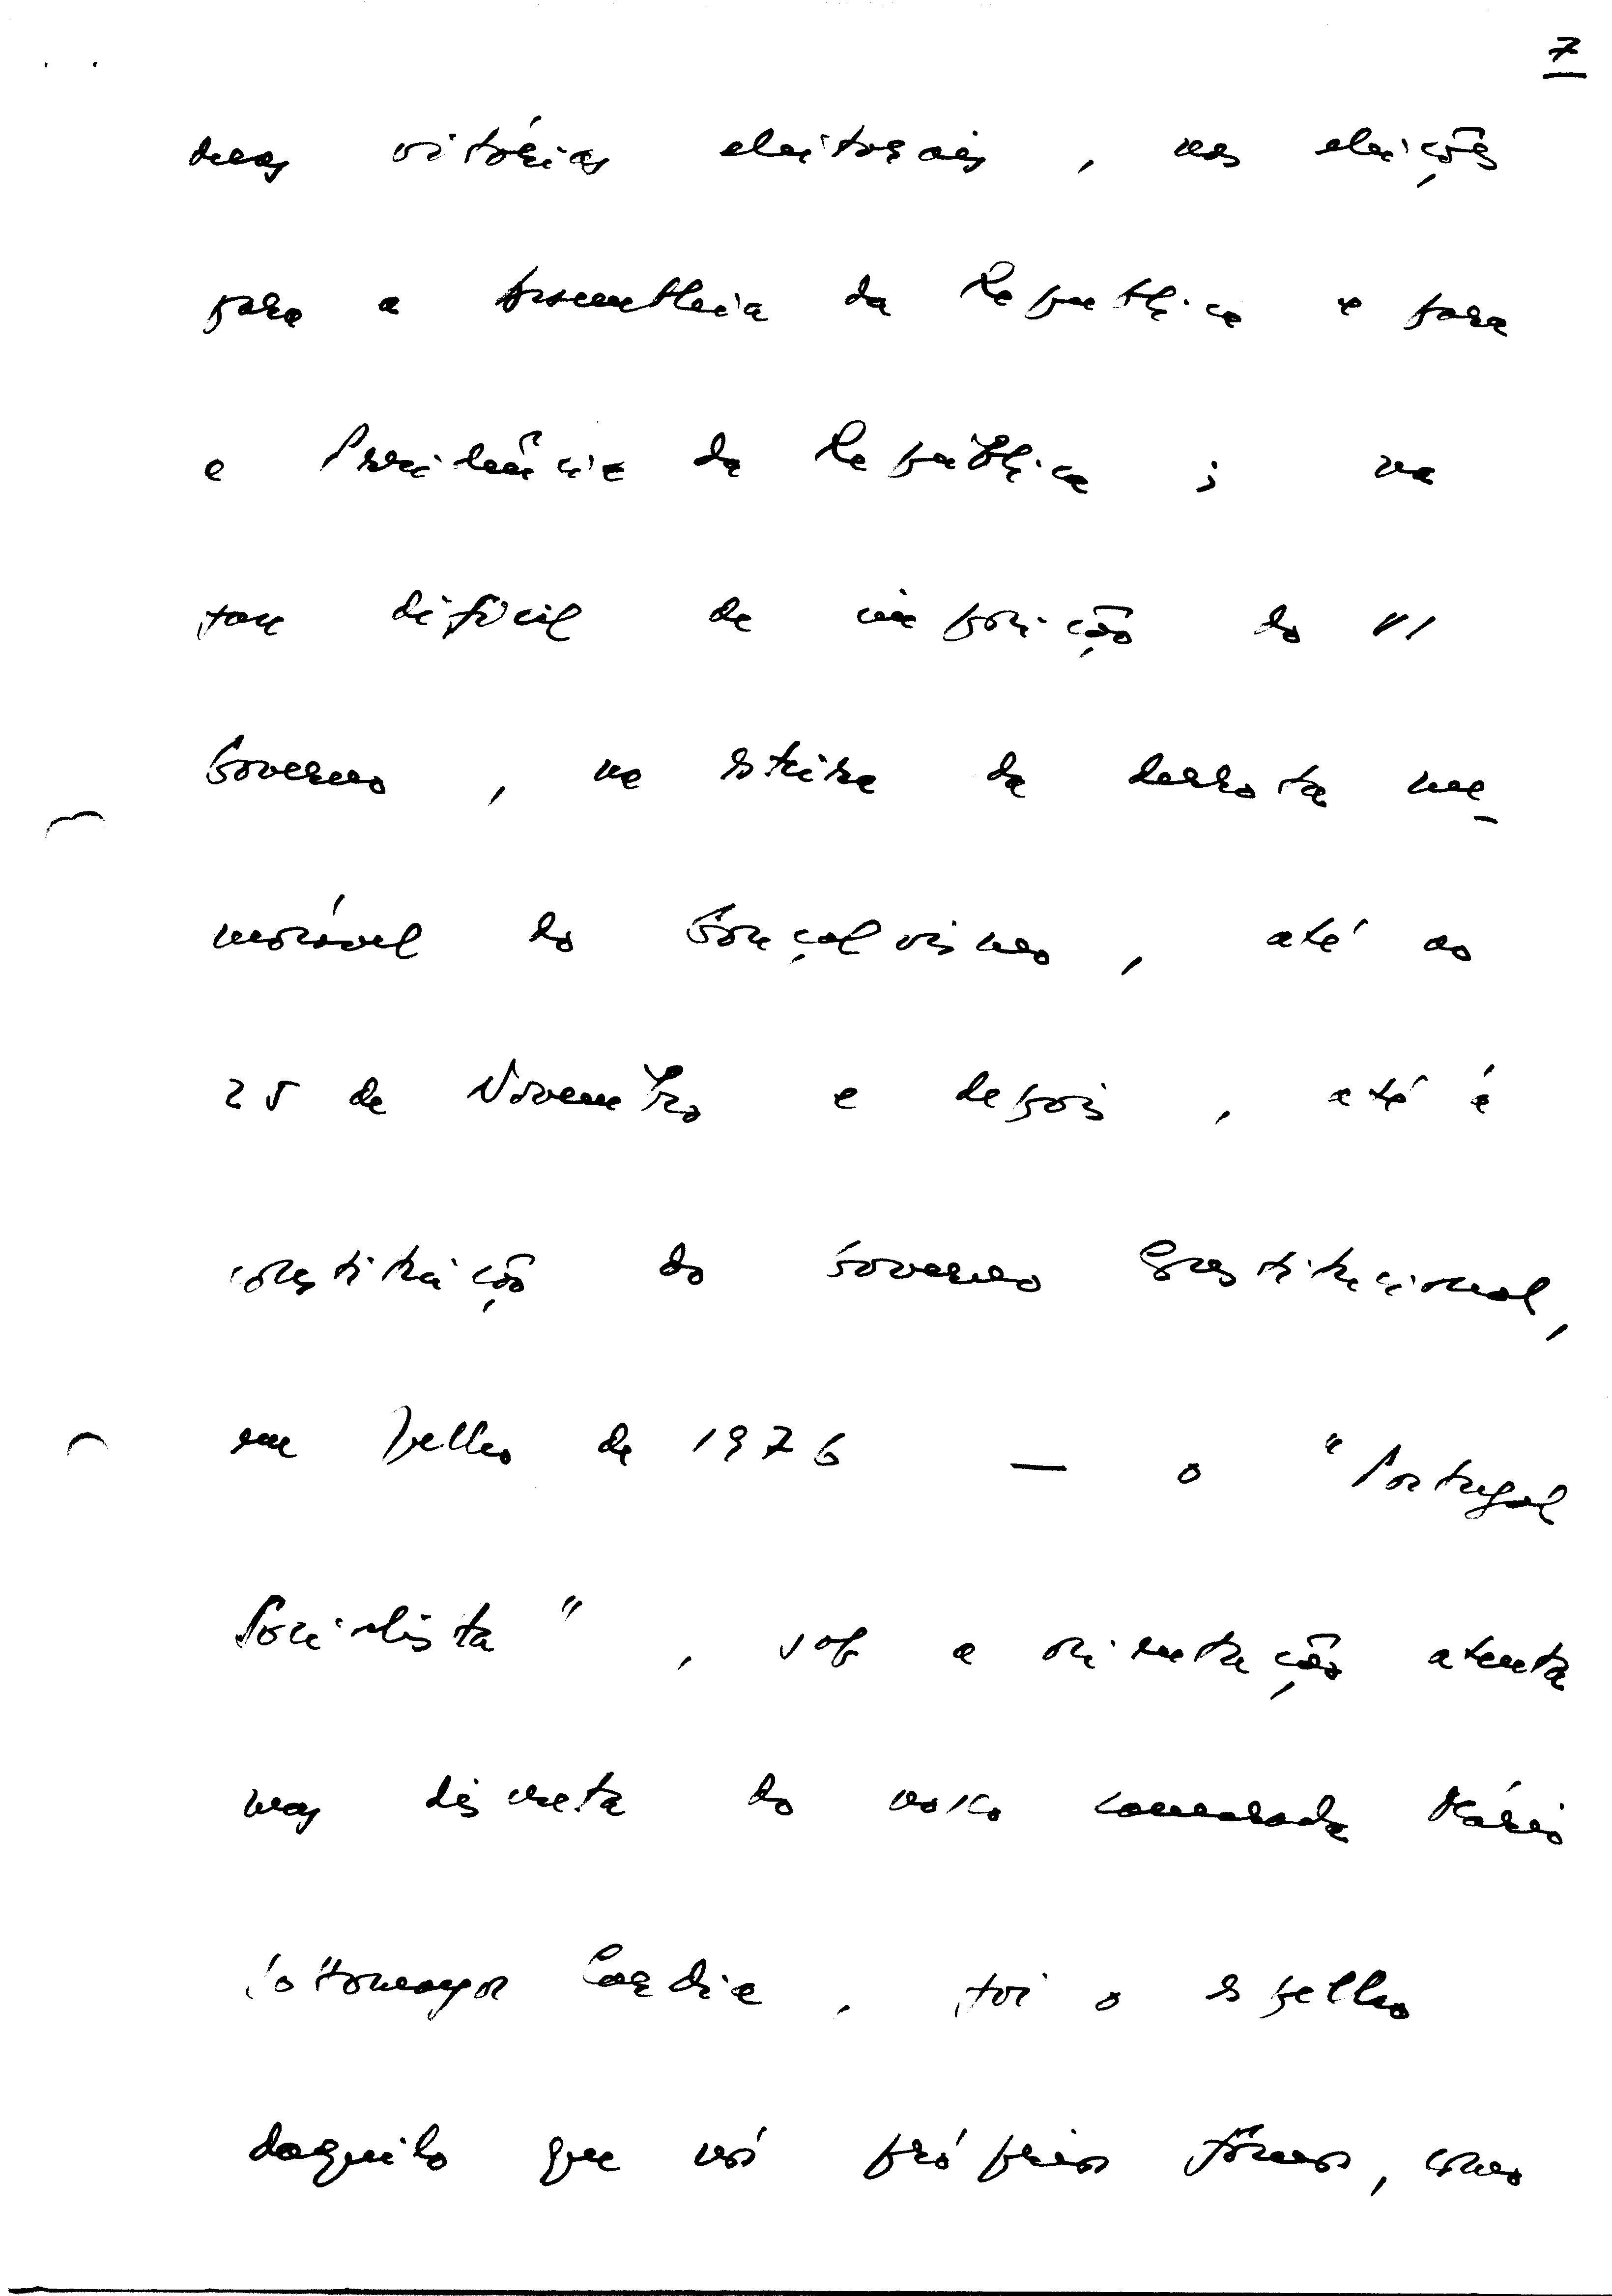 7
duas vitórias eleitorais, nas eleições
para a Assembleia da República e para
a Presidência da República; na
fase difícil de imposição do VI
Governo, na esteira da derrota me-
morável do Gonçalvismo, até ao
25 de Novembro e depois, até à
constituição do Governo Constitucional,
em Julho de 1976 — o "Portugal
Socialista", sob a orientação atenta
mas discreta do nosso camarada Mário
Sottomayor Cardia, foi o espelho
daquilo que nós próprios fomos, como